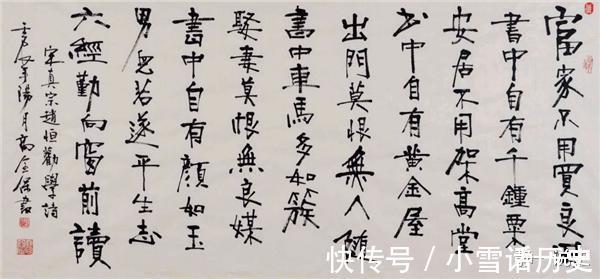 富家不用買良田
書中自有千鍾粟
安居不用架高堂
书中自有黃金屋
出門莫恨無人隨
書中車馬多如簇
娶妻莫恨無良媒
書中自有顏如玉
男兒若遂平生志
六經勤向窗前讀
宋真宗趙恒勸學詩
年陽月高
快传号 / 小雪谱历史